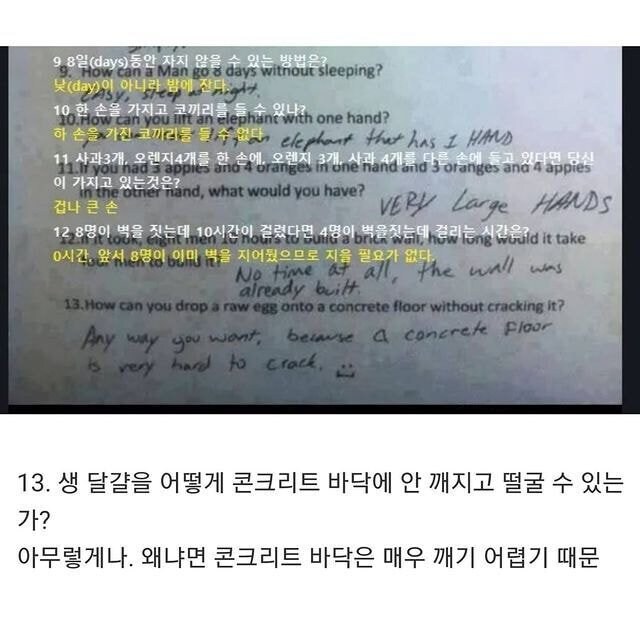 9 8일(days)동안 자지 않을 수 있는 방법은?
9. How can a Man go 8 days without sleeping?
낮(day)이 아니라 밤에 잔다.
10 한 손을 가지고 코끼리를 들 수 있나?
10.How can you lift an elephant with one hand?
하 손을 가진 코끼리를 들 수 없다
elephant that has 1 HAND
11 사과3개, 오렌지4개를 한 손에, 오렌지 3개, 사과 4개를 다른 손에 들고 있다면 당신
11.If you had 3 apples and 4 oranges in one hand and 3 oranges and 4 apples
이 가지고 있는것은?
in the other hand, what would you have?
겁나 큰 손
VERY Large HANDS
12 8명이 벽을 짓는데 10시간이 걸렸다면 4명이 벽을짓는데 걸리는 시간은?
12.If it took, eight men 10 hours to build a brick wall, how long would it take
0시간, 앞서 8명이 이미 벽을 지어놨으므로 지을 필요가 없다.
four men to build it?
No time at all, the wall was
already built.
13.How can you drop a raw egg onto a concrete floor without cracking it?
Any way you want, because a concrete floor
is very hard to crack.
13. 생 달걀을 어떻게 콘크리트 바닥에 안 깨지고 떨굴 수 있는
가?
아무렇게나. 왜냐면 콘크리트 바닥은 매우 깨기 어렵기 때문